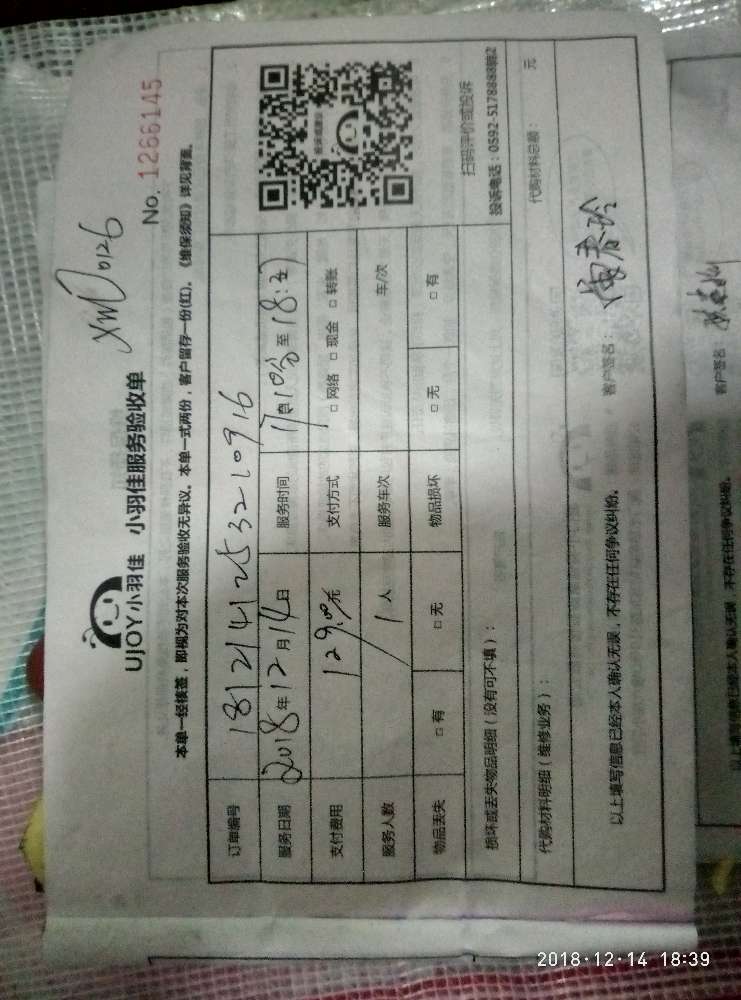 XM0126
UJOY小羽佳 小羽佳服务验收单
No. 1266145
本单一经核签，即视为对本次服务验收无异议。本单一式两份，客户留存一份(红)。《维保须知》详见背面。
订单编号 1812141253210916
服务日期 2018年12月14日 服务时间 17:10分至18:
支付费用 129.00元 支付方式 □网络 □现金 □转账
服务人数 1人 服务车次 车/次
物品丢失 □有 □无 物品损坏 □无 □有
扫码评价或投诉
投诉电话：0592-5178888转2
损坏或丢失物品明细（没有可不填）：
代购材料明细（维修业务）： 代购材料总额： 元
以上填写信息已经本人确认无误，不存在任何争议纠纷。 客户签名：
客户签名
以上填写信息已经本人确认无误，不存在任何争议纠纷。
2018-12-14 18:39